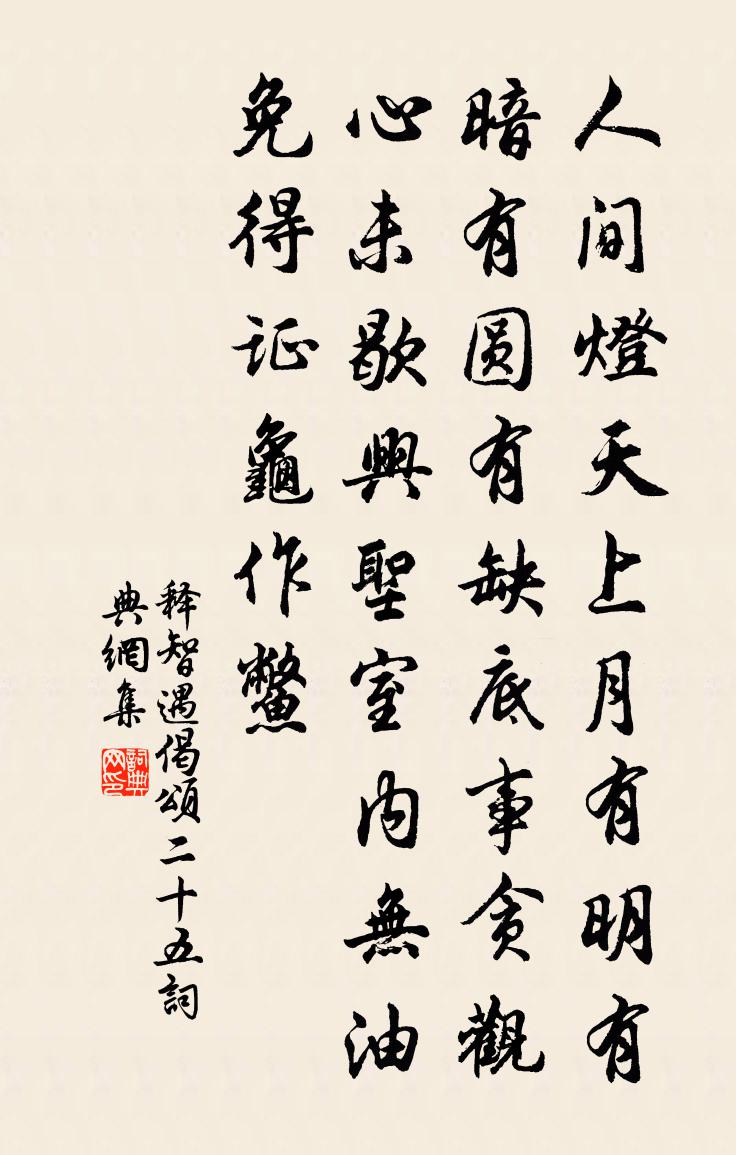 人間燈天上月有明有
暗有圆有缺底事贪觀
心未歇興聖室内無油
免得证龜作鱉
释智遇偈頌二十五詞
典網集
詞典網印